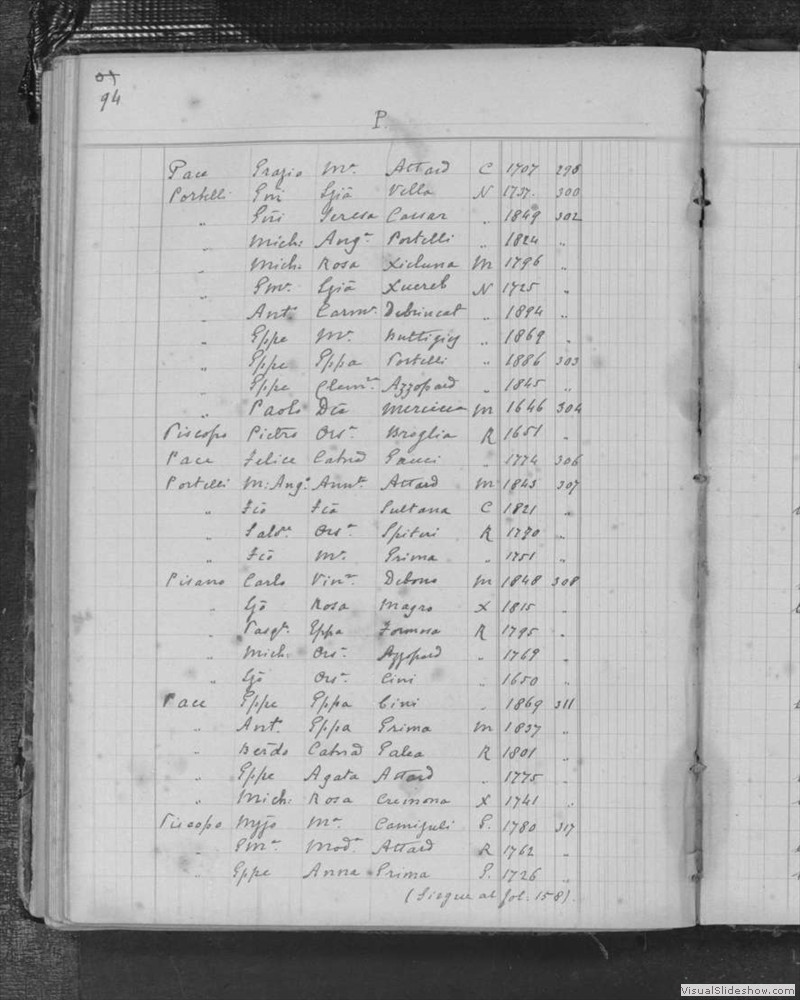 94
P.
Pace Grazio Mᵃ Attard C 1707 298
Portelli Gni Gjā Vella N 1737. 300
„ Gni Teresa Cassar „ 1849 302
„ Mich: Angᵃ Portelli „ 1824 „
„ Mich. Rosa Xicluna M 1796 „
„ Gmᵉ Gjā Xuereb N 1725 „
„ Antᵒ Carmᵃ Debrincat „ 1894 „
„ Gppe Mᵃ Buttigieg „ 1869 „
„ Gppe Gppa Portelli „ 1886 303
„ Gppe Clemᵃ Azzopard „ 1845 „
„ Paolo Dca Mercieca M 1646 304
Piscopo Pietro Orsᵃ Broglia R 1651 „
Pace Felice Catnā Gauci „ 1774 306
Portelli M: Angᵒ Annᵗᵃ Attard M 1843 307
„ Fcō Fcā Sultana C 1821 „
„ Salvᵉ Orsᵃ Spiteri R 1780 „
„ Fcō Mᵃ Grima „ 1751 „
Pisano Carlo Vinᵃ Debono M 1848 308
„ Gjō Rosa Magro X 1815 „
„ Pasqᵉ Gppa Formosa R 1795 „
„ Mich: Orsᵃ Azzopard „ 1769 „
„ Gjō Orsᵃ Cini „ 1650 „
Pace Gppe Gppa Cini „ 1869 311
„ Antᵒ Gppa Grima M 1837 „
„ Berdo Catnā Galea R 1801 „
„ Gppe Agata Attard „ 1775 „
„ Mich: Rosa Cremona X 1741 „
Piscopo Mᵃ Camiguli P. 1780 317
„ Gmᵉ Modᵃ Attard R 1762 „
„ Gppe Anna Grima P. 1726 „
(Siegue al fol. 158).
VisualSlideshow.com